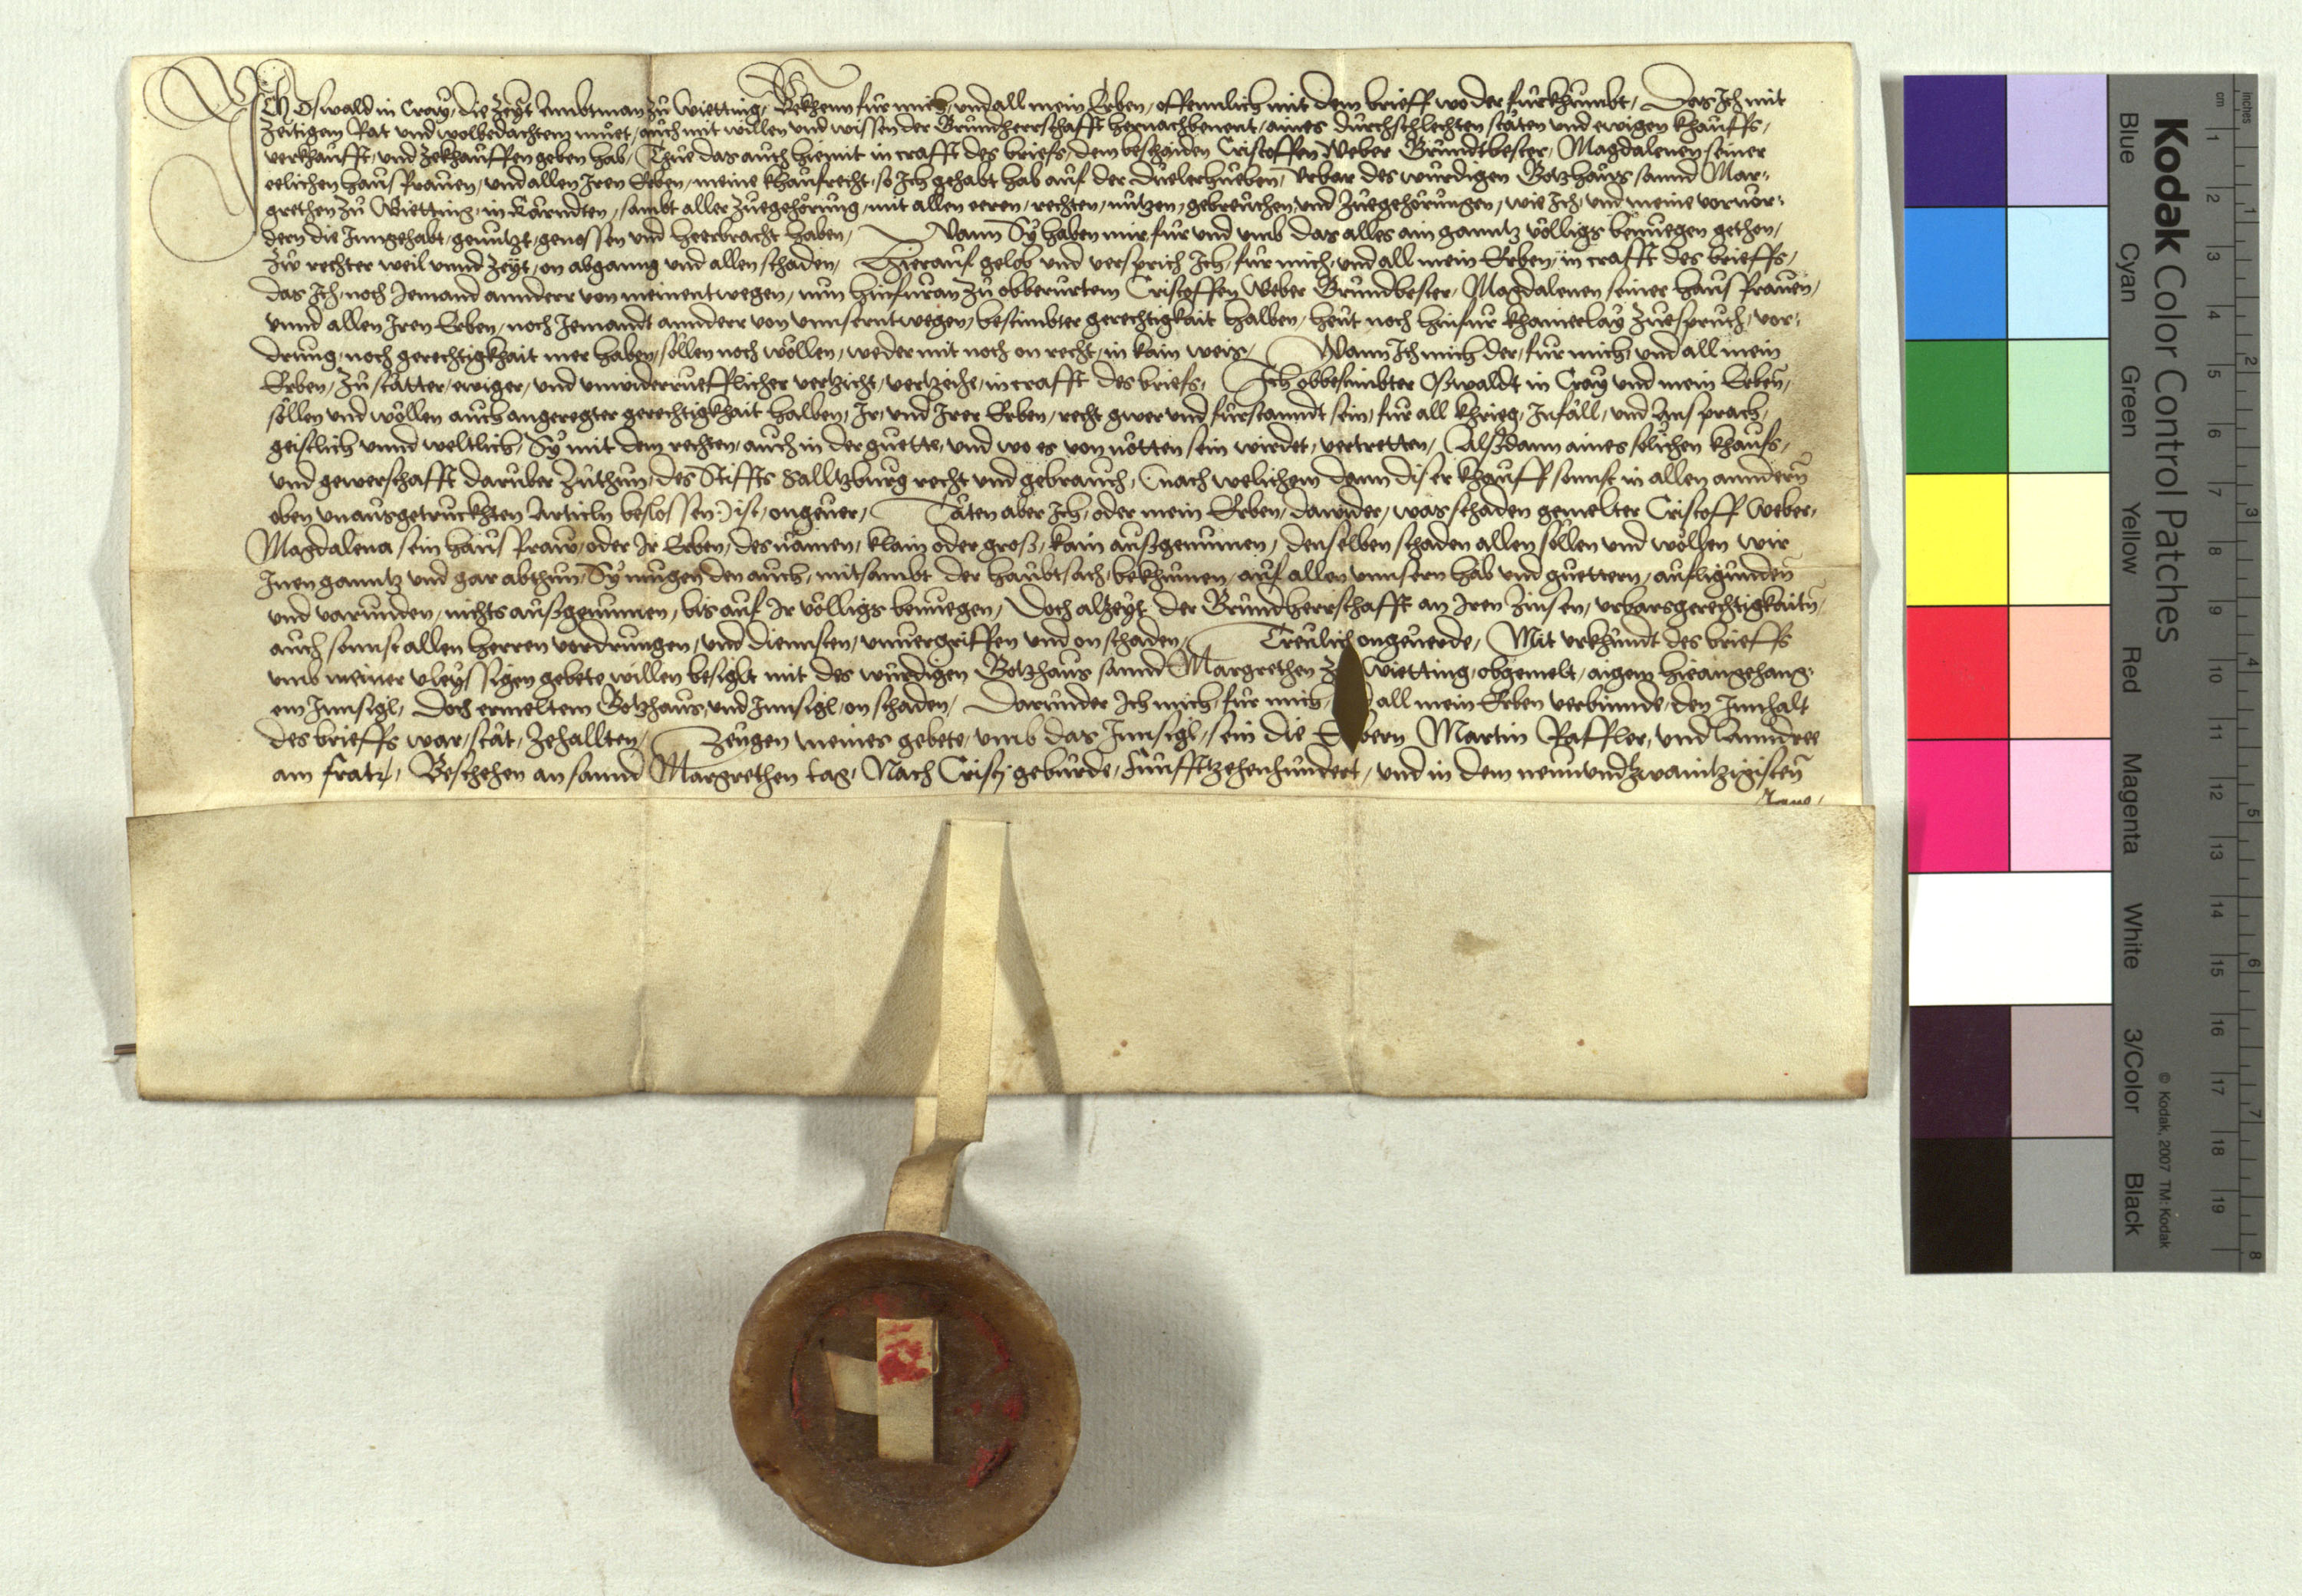 Ich Oswald in Cray, die zeyt Ambtman zů Wietting, Bekhenn fůr mich, und all mein Erben, offennlich mit dem brieff wo der fůrkhůmbt, Das Ich mit
zeitigem Rat und wolbedachtem můet, auch mit willen und wissen der Grůndherrschafft hernachbenent, aines důrchschlechten stäten und ewigen khauffs,
verkhaufft, und zekhauffen geben hab, Thůe das auch hiemit in crafft des briefs, dem beschaiden Cristoffen Weber Magdalenen seiner
eelichen hausfrauen, und allen Iren Erben, meine khaufrecht, so Ich gehabt hab auf der Urbar des wůrdigen Gotzhaus sannd Mar-
grethen zů Wietting, in Kärndten, sambt aller zůegehörung, mit allen eeren, rechten, nůtzen, gebreuchen, und zůegehörůngen, wie Ich, und meine vorvor-
dern die Inngehabt, genůtzt, genossen und heerbracht haben, Wann Sy haben mir, fůr und umb das alles ain ganntz völligs benůegen gethon,
zů rechter weil unnd zeyt, on abganng und allen schaden, Hierauf gelob und versprich Ich, fůr mich, und all mein Erben, in crafft des brieffs,
das Ich, noch Jemand annderr von meinentwegen, nun hinfůran zů obberůrtem Cristoffen Weber Magdalenen seiner hausfrauen,
unnd allen Iren Erben, noch Jemandt annderr von unnserntwegen, bestimbter gerechtigkait halben, heut noch hinfůr khainerlay zůesprůch, vor-
drung, noch gerechtigkhait mer haben, söllen noch wöllen, weder mit noch on recht, in kain weis, Wann Ich mich der, fůr mich, und all mein
Erben, zů stätter, ewiger, und unwiderrůefflicher vertzicht, vertzeihe, in crafft des briefs, Ich obbestimbter Oßwaldt in Cray und mein Erben,
söllen und wöllen auch angeregter gerechtigkhait halben, Ir, und Irer Erben, recht gwer und fůrstanndt sein, fůr all khrieg, Infäll, und Zusprach,
geistlich unnd weltlich, Sy mit dem rechten, auch in der gůette, und wo es von nötten sein wirdet, vertretten, Alßdann aines solichen khaufs,
und gewerschafft darůber zůthůn, des Stiffts Salltzbůrg recht und gebrauch, (nach welichem dann diser khauff sonnst in allen anndern
oben unausgetruckhten Articln beslossen) ist, ongeuer, Täten aber Ich, oder mein Erben, dawider, was schaden gemelter Cristoff Weber,
Magdalena sein hausfraw, oder Ir Erben, des nämen, klain oder groß, kain außgenůmen, denselben schaden allen söllen und wöllen wir
Inen ganntz und gar abthůn, Sy můgen den auch, mitsambt der haubtsach, bekhůmen, auf allen unnsern hab und gůettern, aufligůnden
und varůnden, nichts außgenůmen, bis auf Ir völligs benůegen, Doch alzeyt der Grůndherrschafft an Iren Zinsen, urbarsgerechtigkaitn,
auch sonnst allen herren vordrůngen, und diennsten, unvergriffen und on schaden, Treulich ongeuerde, Mit urkhůndt des brieffs
umb meiner vleyssigen gebete willen besiglt mit des wůrdigen Gotzhaus sannd Margrethen Wietting, obgemelt, aigem hieangehang-
em Innsigl, Doch ermeltem Gotzhaus, und Innsigl, on schaden, Darůnder Ich mich, fůr mich, all mein Erben verbinnde, den Innhalt
des brieffs war, stät, zehallten, Zeugen meines gebete, umb das Innsigl, sein die Martin Raffler, und Anndree
am Beschehen an sannd Margrethen tag, Nach Cristj gebůrde, Fůnfftzehenhůndert, und in dem neunundzwaintzigisten
Jare,
Kodak Color Control Patches
Blue Cyan Green Yellow Red Magenta White 3/Color Black
© Kodak, 2007 TM: Kodak
cm 1 2 3 4 5 6 7 8 9 10 11 12 13 14 15 16 17 18 19
inches 1 2 3 4 5 6 7 8